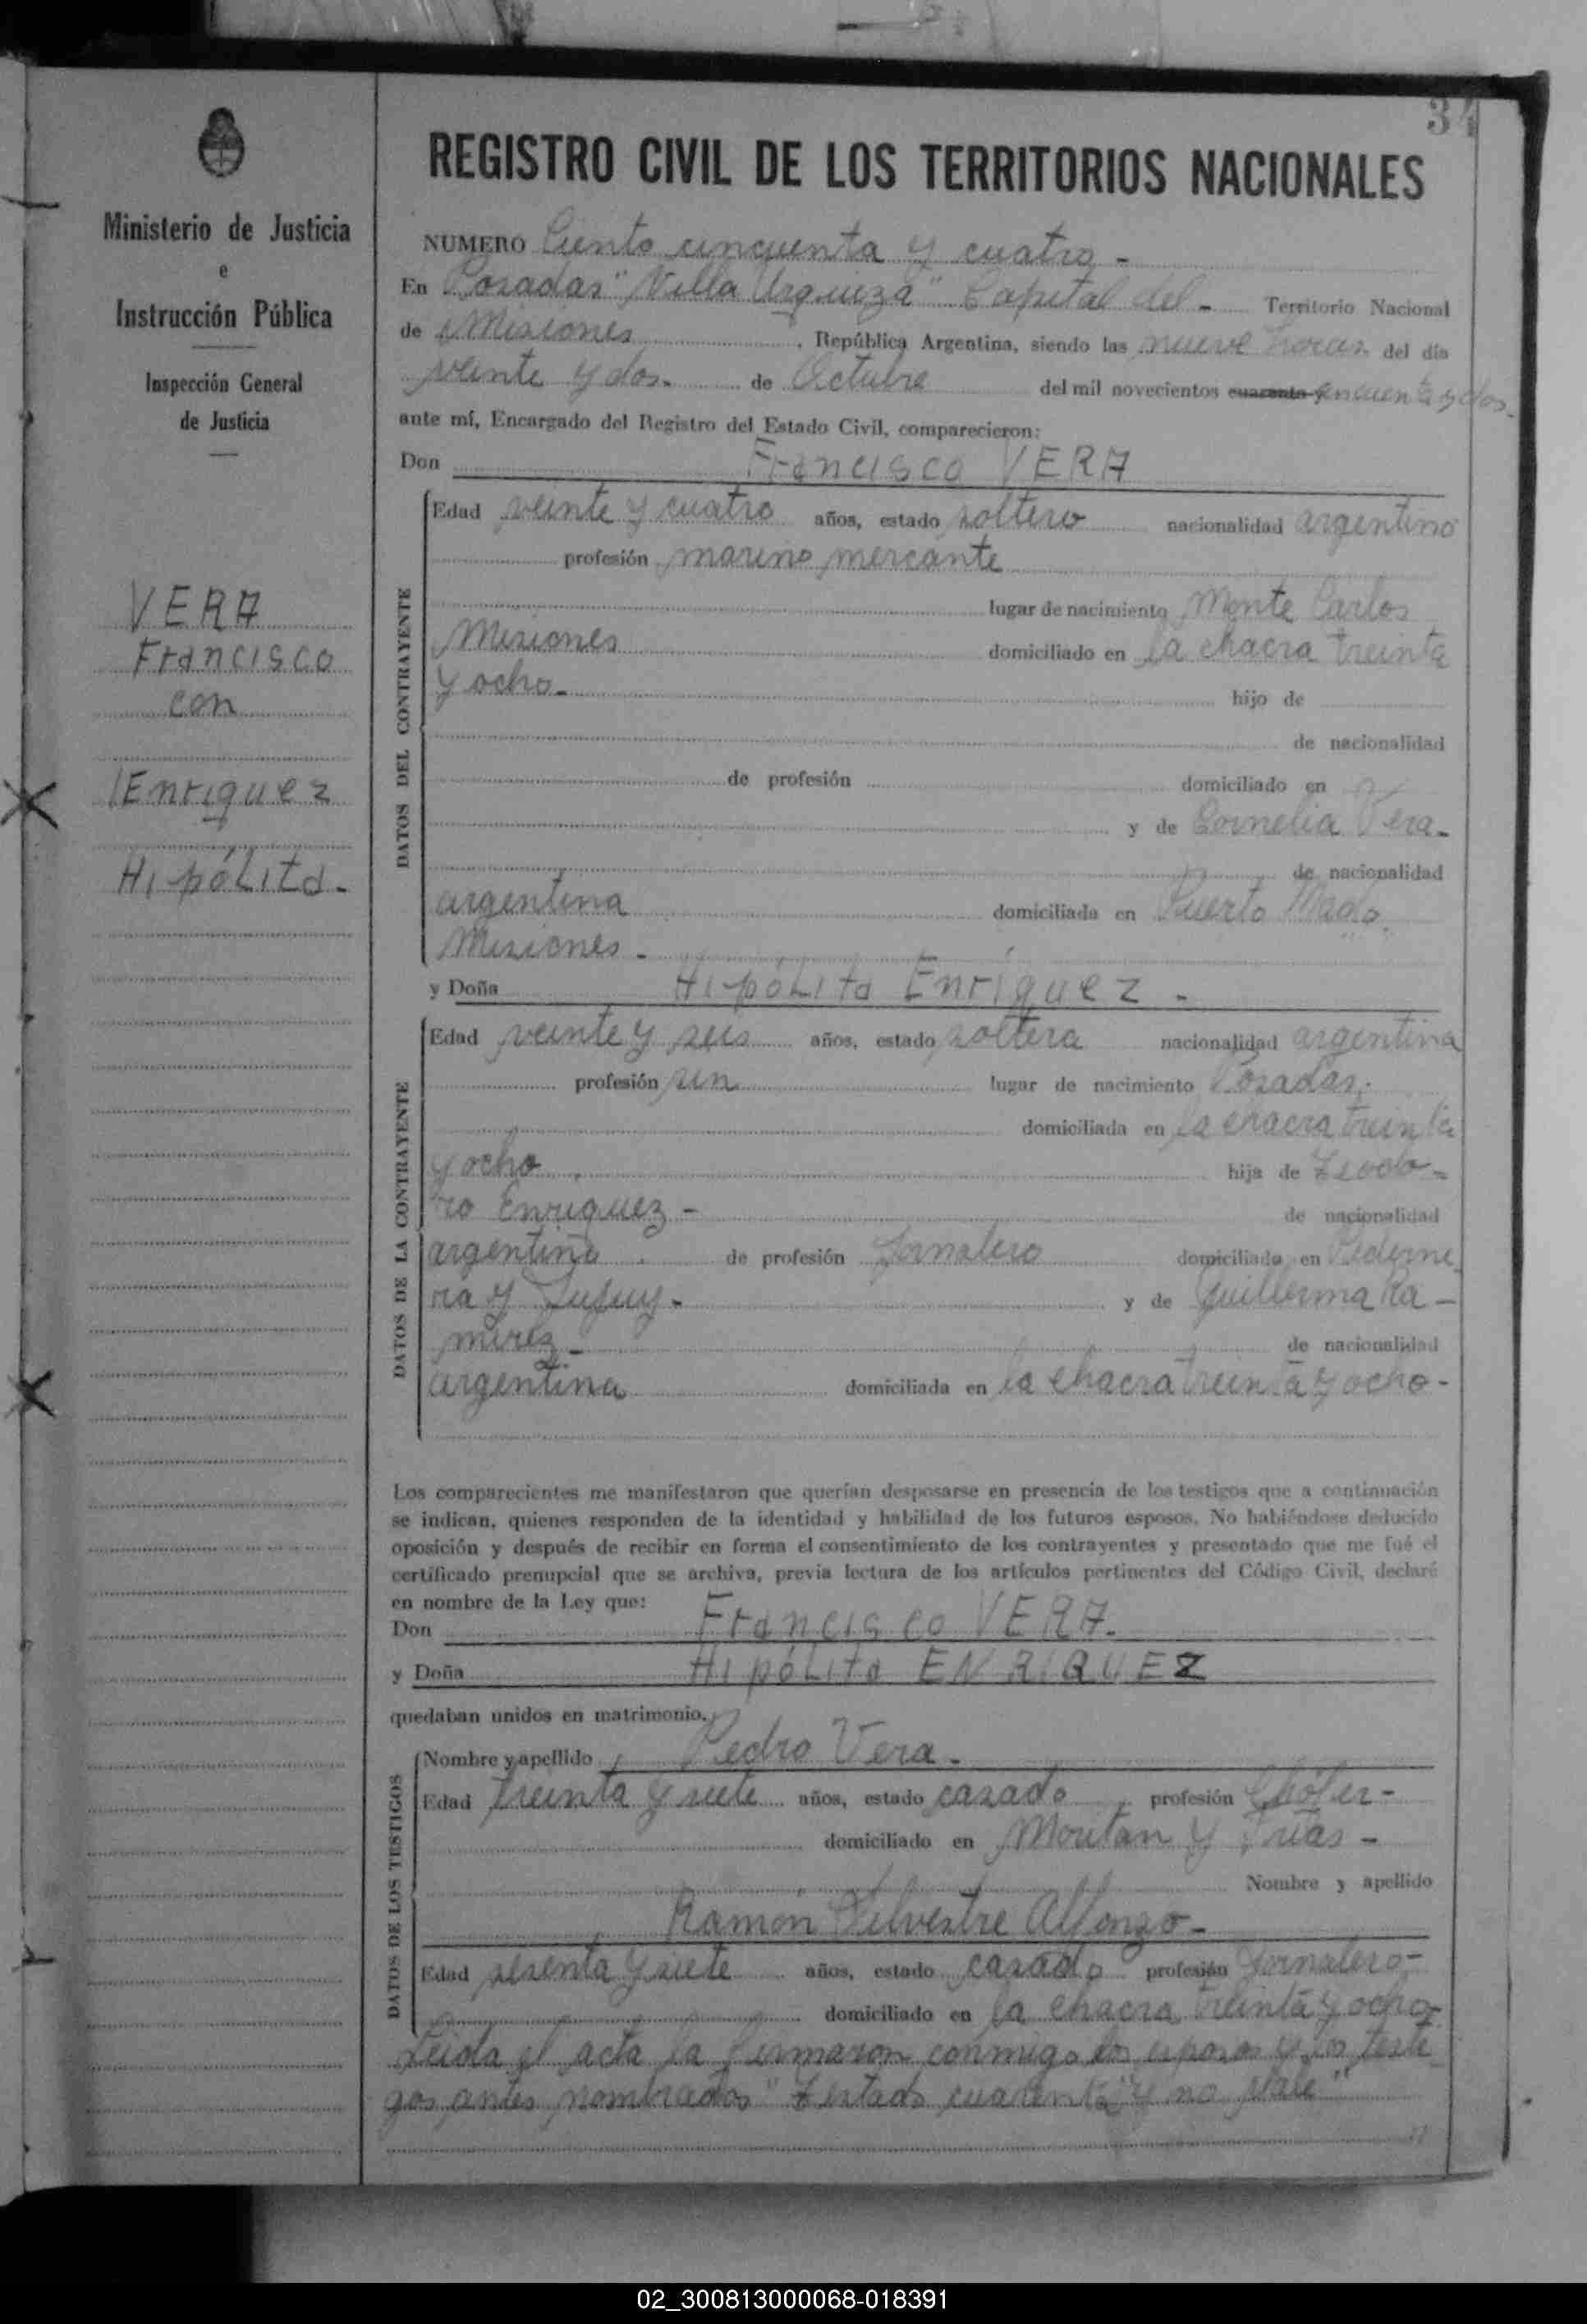 34
REGISTRO CIVIL DE LOS TERRITORIOS NACIONALES
Ministerio de Justicia
e
Instrucción Pública
Inspección General
de Justicia
VERA
Francisco
con
Enriquez
Hipólita.
NUMERO Ciento cincuenta y cuatro -
En Posadas "Villa Urquiza" Capital del - Territorio Nacional
de Misiones, República Argentina, siendo las nueve horas del día
veinte y dos. de Octubre del mil novecientos cuarenta y cincuenta y dos.
ante mí, Encargado del Registro del Estado Civil, comparecieron:
Don Francisco VERA
DATOS DEL CONTRAYENTE
Edad veinte y cuatro años, estado soltero nacionalidad argentino
profesión marino mercante
lugar de nacimiento Monte Carlos
Misiones domiciliado en la chacra treinta
y ocho. hijo de
de nacionalidad
de profesión domiciliado en
y de Cornelia Vera.
de nacionalidad
argentina domiciliada en Puerto Mado.
Misiones.
y Doña Hipólita Enríquez -
DATOS DE LA CONTRAYENTE
Edad veinte y seis años, estado soltera nacionalidad argentina
profesión sin lugar de nacimiento Posadas.
domiciliada en la chacra treinta
y ocho hija de Teodo-
ro Enriquez - de nacionalidad
argentino de profesión Jornalero domiciliado en Pederne
ra y Jujuy. y de Guillerma Ra-
mirez - de nacionalidad
argentina domiciliada en la chacra treinta y ocho-
Los comparecientes me manifestaron que querían desposarse en presencia de los testigos que a continuación
se indican, quienes responden de la identidad y habilidad de los futuros esposos. No habiéndose deducido
oposición y después de recibir en forma el consentimiento de los contrayentes y presentado que me fué el
certificado prenupcial que se archiva, previa lectura de los artículos pertinentes del Código Civil, declaré
en nombre de la Ley que:
Don Francisco VERA.
y Doña Hipólita ENRIQUEZ
quedaban unidos en matrimonio.
DATOS DE LOS TESTIGOS
Nombre y apellido Pedro Vera.
Edad treinta y siete años, estado casado profesión Chófer-
domiciliado en Moritan y Frias -
Nombre y apellido
Ramón Silvestre Alfonzo-
Edad sesenta y siete años, estado casado profesión Jornalero-
domiciliado en la chacra treinta y ocho-
Leida el acta la firmaron conmigo los esposos y los testi
gos antes nombrados "Testado cuarenta y no vale"
02_300813000068-018391